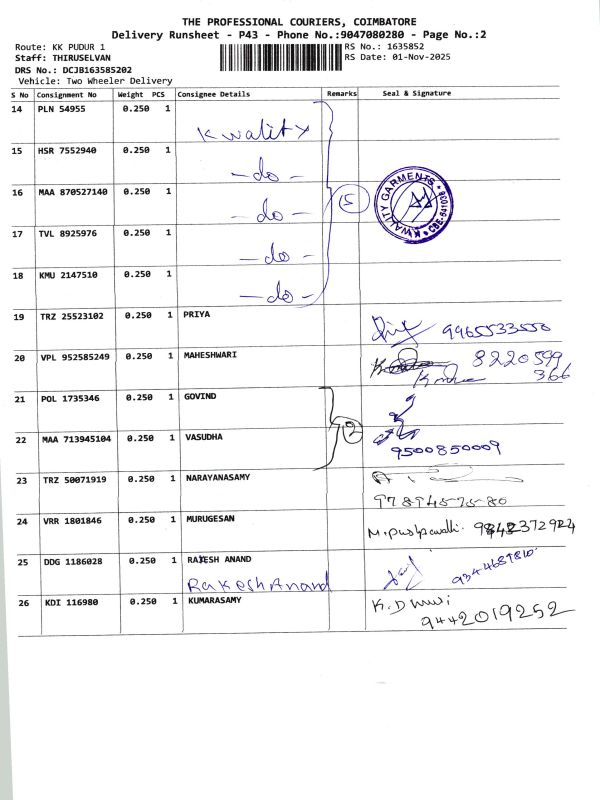 THE PROFESSIONAL COURIERS, COIMBATORE
Delivery Runsheet - P43 - Phone No.:9047080280 - Page No.:2
Route: KK PUDUR 1
RS No.: 1635852
Staff: THIRUSELVAN
RS Date: 01-Nov-2025
DRS No.: DCJB163585202
Vehicle: Two Wheeler Delivery
S No Consignment No Weight PCS Consignee Details Remarks Seal & Signature
14 PLN 54955 0.250 1
Kwality
15 HSR 7552940 0.250 1
-do-
16 MAA 870527140 0.250 1
-do-
5
KWALITY GARMENTS
17 TVL 8925976 0.250 1
-do-
18 KMU 2147510 0.250 1
-do-
19 TRZ 25523102 0.250 1 PRIYA
9965533550
20 VPL 952585249 0.250 1 MAHESHWARI
8220599
366
21 POL 1735346 0.250 1 GOVIND
2
22 MAA 713945104 0.250 1 VASUDHA
9500850009
23 TRZ 50071919 0.250 1 NARAYANASAMY
24 VRR 1801846 0.250 1 MURUGESAN
M. Pushpavalli.
25 DDG 1186028 0.250 1 RAKESH ANAND
Rakesh Anand
26 KDI 116980 0.250 1 KUMARASAMY
9442019252